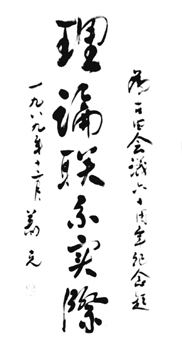 為古田会議六十周年纪念题
理論联系实際
一九八九年十二月 萧克